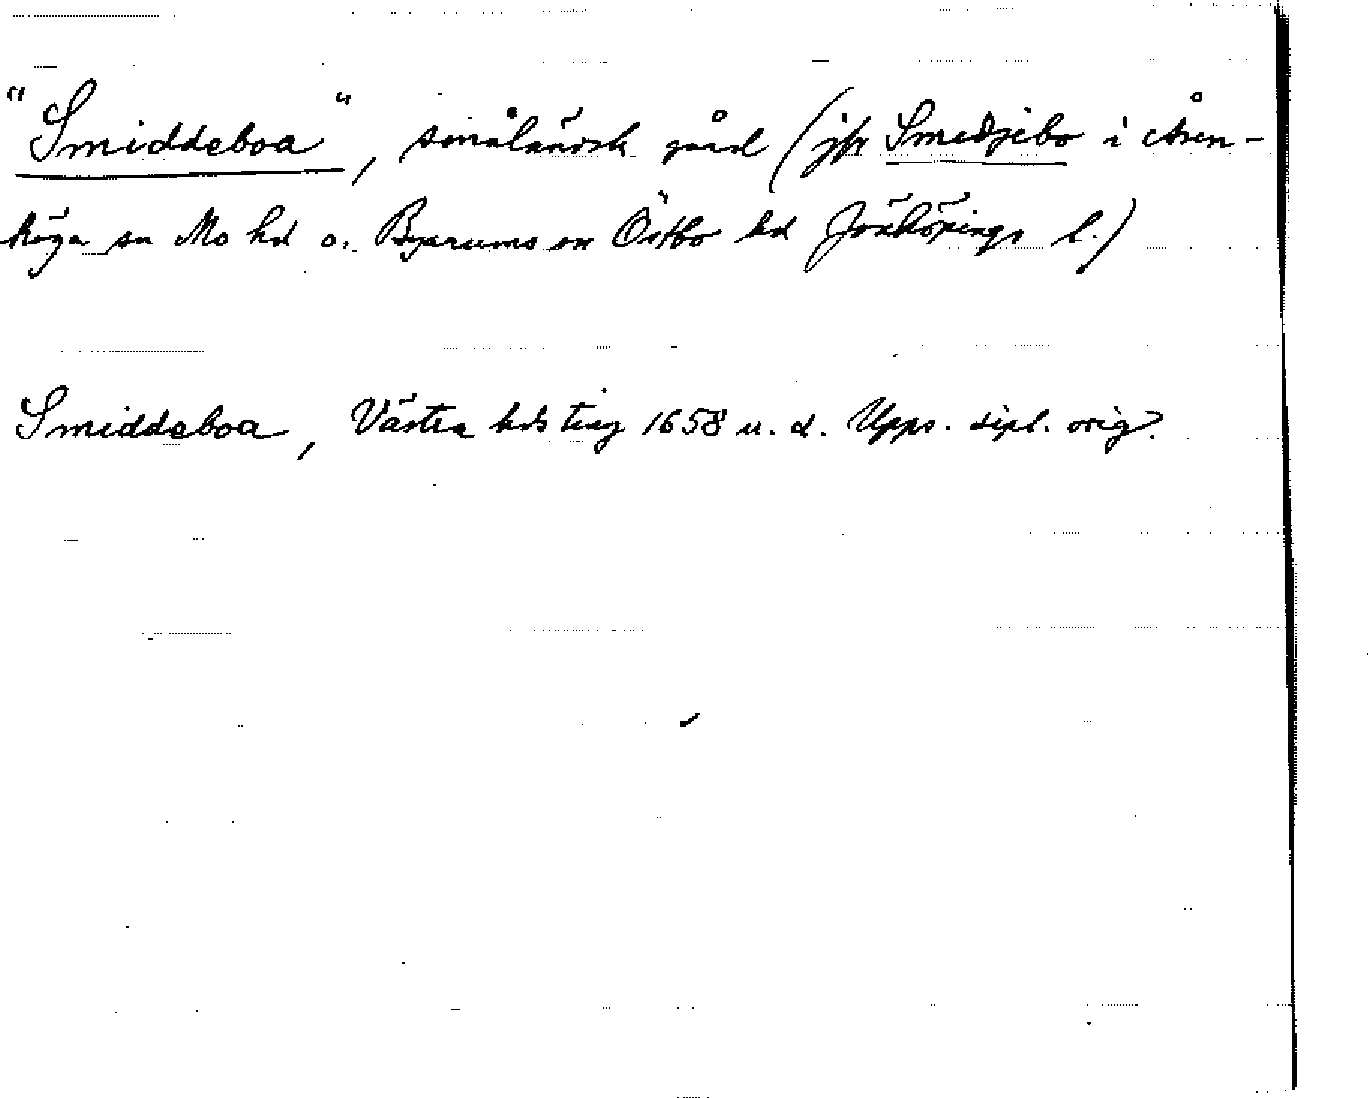 "Smiddeboa", småländsk gård (jfr Smedjebo i Åsen-
höga sn Mo hd o. Byarums sn Östbo hd Jönköpings l.)
Smiddeboa, Västra hds ting 1658 u. d. Upps. dipl. orig.